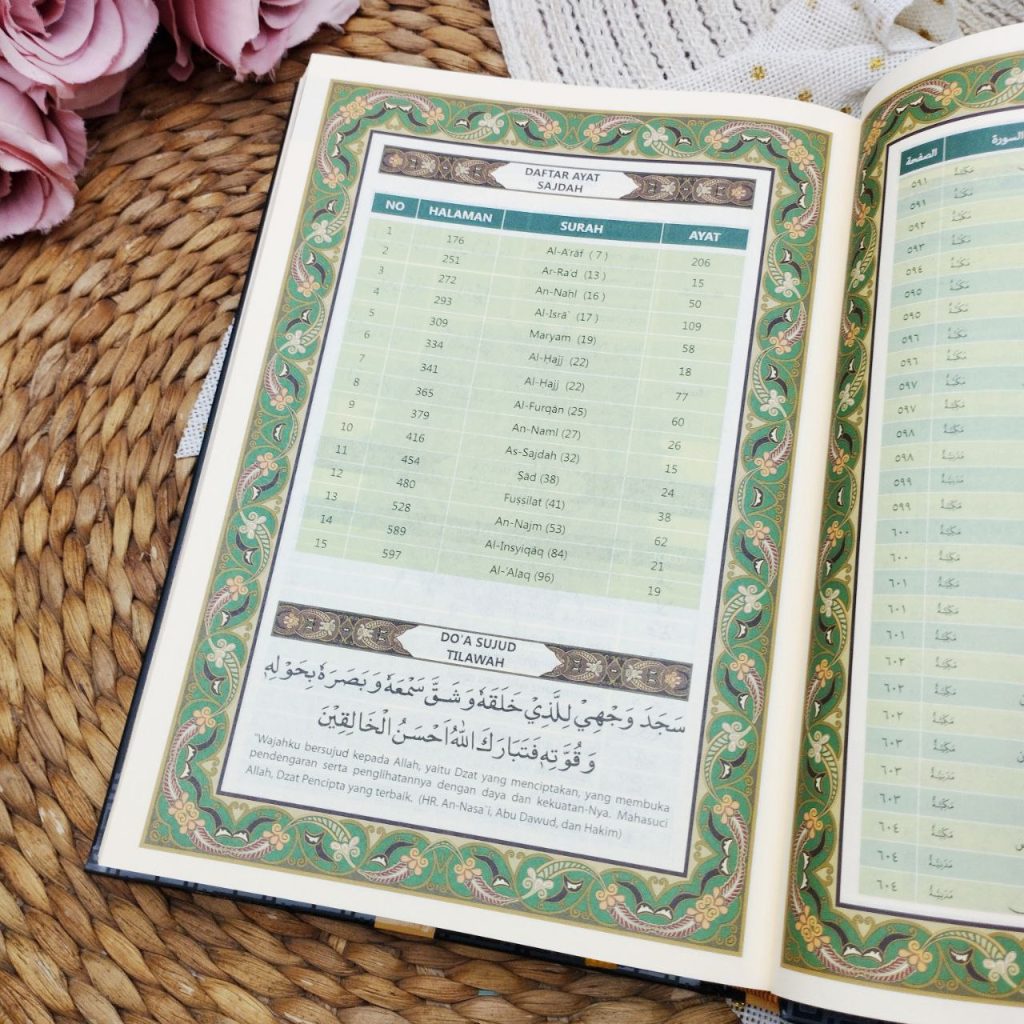 DAFTAR AYAT
SAJDAH
NO HALAMAN SURAH AYAT
1 176 Al-A'rāf (7) 206
2 251 Ar-Ra'd (13) 15
3 272 An-Nahl (16) 50
4 293 Al-Isrā` (17) 109
5 309 Maryam (19) 58
6 334 Al-Ḥajj (22) 18
7 341 Al-Ḥajj (22) 77
8 365 Al-Furqān (25) 60
9 379 An-Naml (27) 26
10 416 As-Sajdah (32) 15
11 454 Ṣād (38) 24
12 480 Fuṣṣilat (41) 38
13 528 An-Najm (53) 62
14 589 Al-Insyiqāq (84) 21
15 597 Al-'Alaq (96) 19
DO'A SUJUD
TILAWAH
سَجَدَ وَجْهِيْ لِلَّذِيْ خَلَقَهٗ وَشَقَّ سَمْعَهٗ وَبَصَرَهٗ بِحَوْلِهٖ
وَقُوَّتِهٖ فَتَبَارَكَ اللّٰهُ اَحْسَنُ الْخَالِقِيْنَ
"Wajahku bersujud kepada Allah, yaitu Dzat yang menciptakan, yang membuka
pendengaran serta penglihatannya dengan daya dan kekuatan-Nya. Mahasuci
Allah, Dzat Pencipta yang terbaik. (HR. An-Nasa`i, Abu Dawud, dan Hakim)
السورة الصفحة
مَكِّيَّةٌ ٥٩١
مَكِّيَّةٌ ٥٩١
مَكِّيَّةٌ ٥٩٢
مَكِّيَّةٌ ٥٩٣
مَكِّيَّةٌ ٥٩٤
مَكِّيَّةٌ ٥٩٥
مَكِّيَّةٌ ٥٩٥
مَكِّيَّةٌ ٥٩٦
مَكِّيَّةٌ ٥٩٦
مَكِّيَّةٌ ٥٩٧
مَكِّيَّةٌ ٥٩٧
مَكِّيَّةٌ ٥٩٨
مَدَنِيَّةٌ ٥٩٨
مَدَنِيَّةٌ ٥٩٩
مَكِّيَّةٌ ٥٩٩
مَكِّيَّةٌ ٦٠٠
مَكِّيَّةٌ ٦٠٠
مَكِّيَّةٌ ٦٠١
مَكِّيَّةٌ ٦٠١
مَكِّيَّةٌ ٦٠١
مَكِّيَّةٌ ٦٠٢
مَكِّيَّةٌ ٦٠٢
مَكِّيَّةٌ ٦٠٢
مَكِّيَّةٌ ٦٠٣
مَدَنِيَّةٌ ٦٠٣
مَكِّيَّةٌ ٦٠٣
مَكِّيَّةٌ ٦٠٤
مَدَنِيَّةٌ ٦٠٤
مَدَنِيَّةٌ ٦٠٤